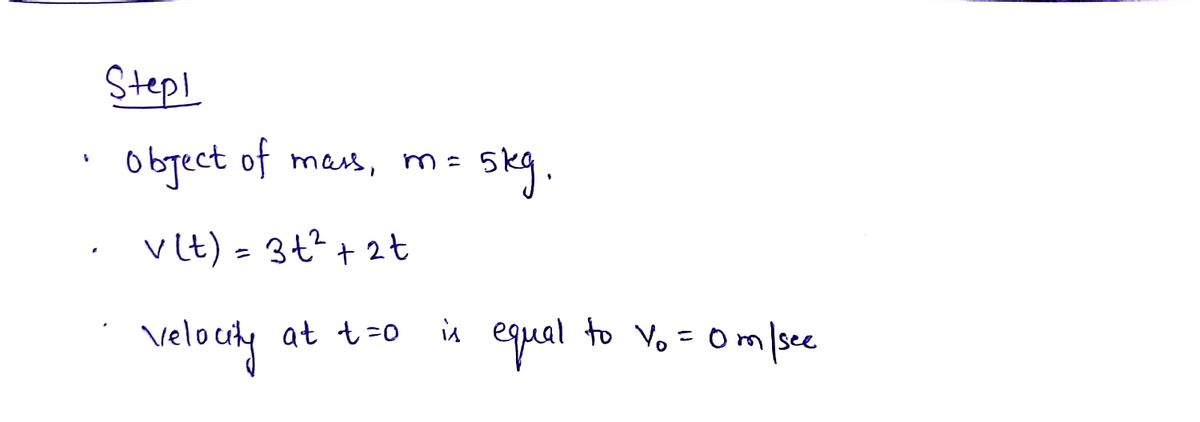 Step1
· Object of mass, m = 5kg.
· v(t) = 3t² + 2t
· velocity at t=0 is equal to V₀ = 0 m/sec